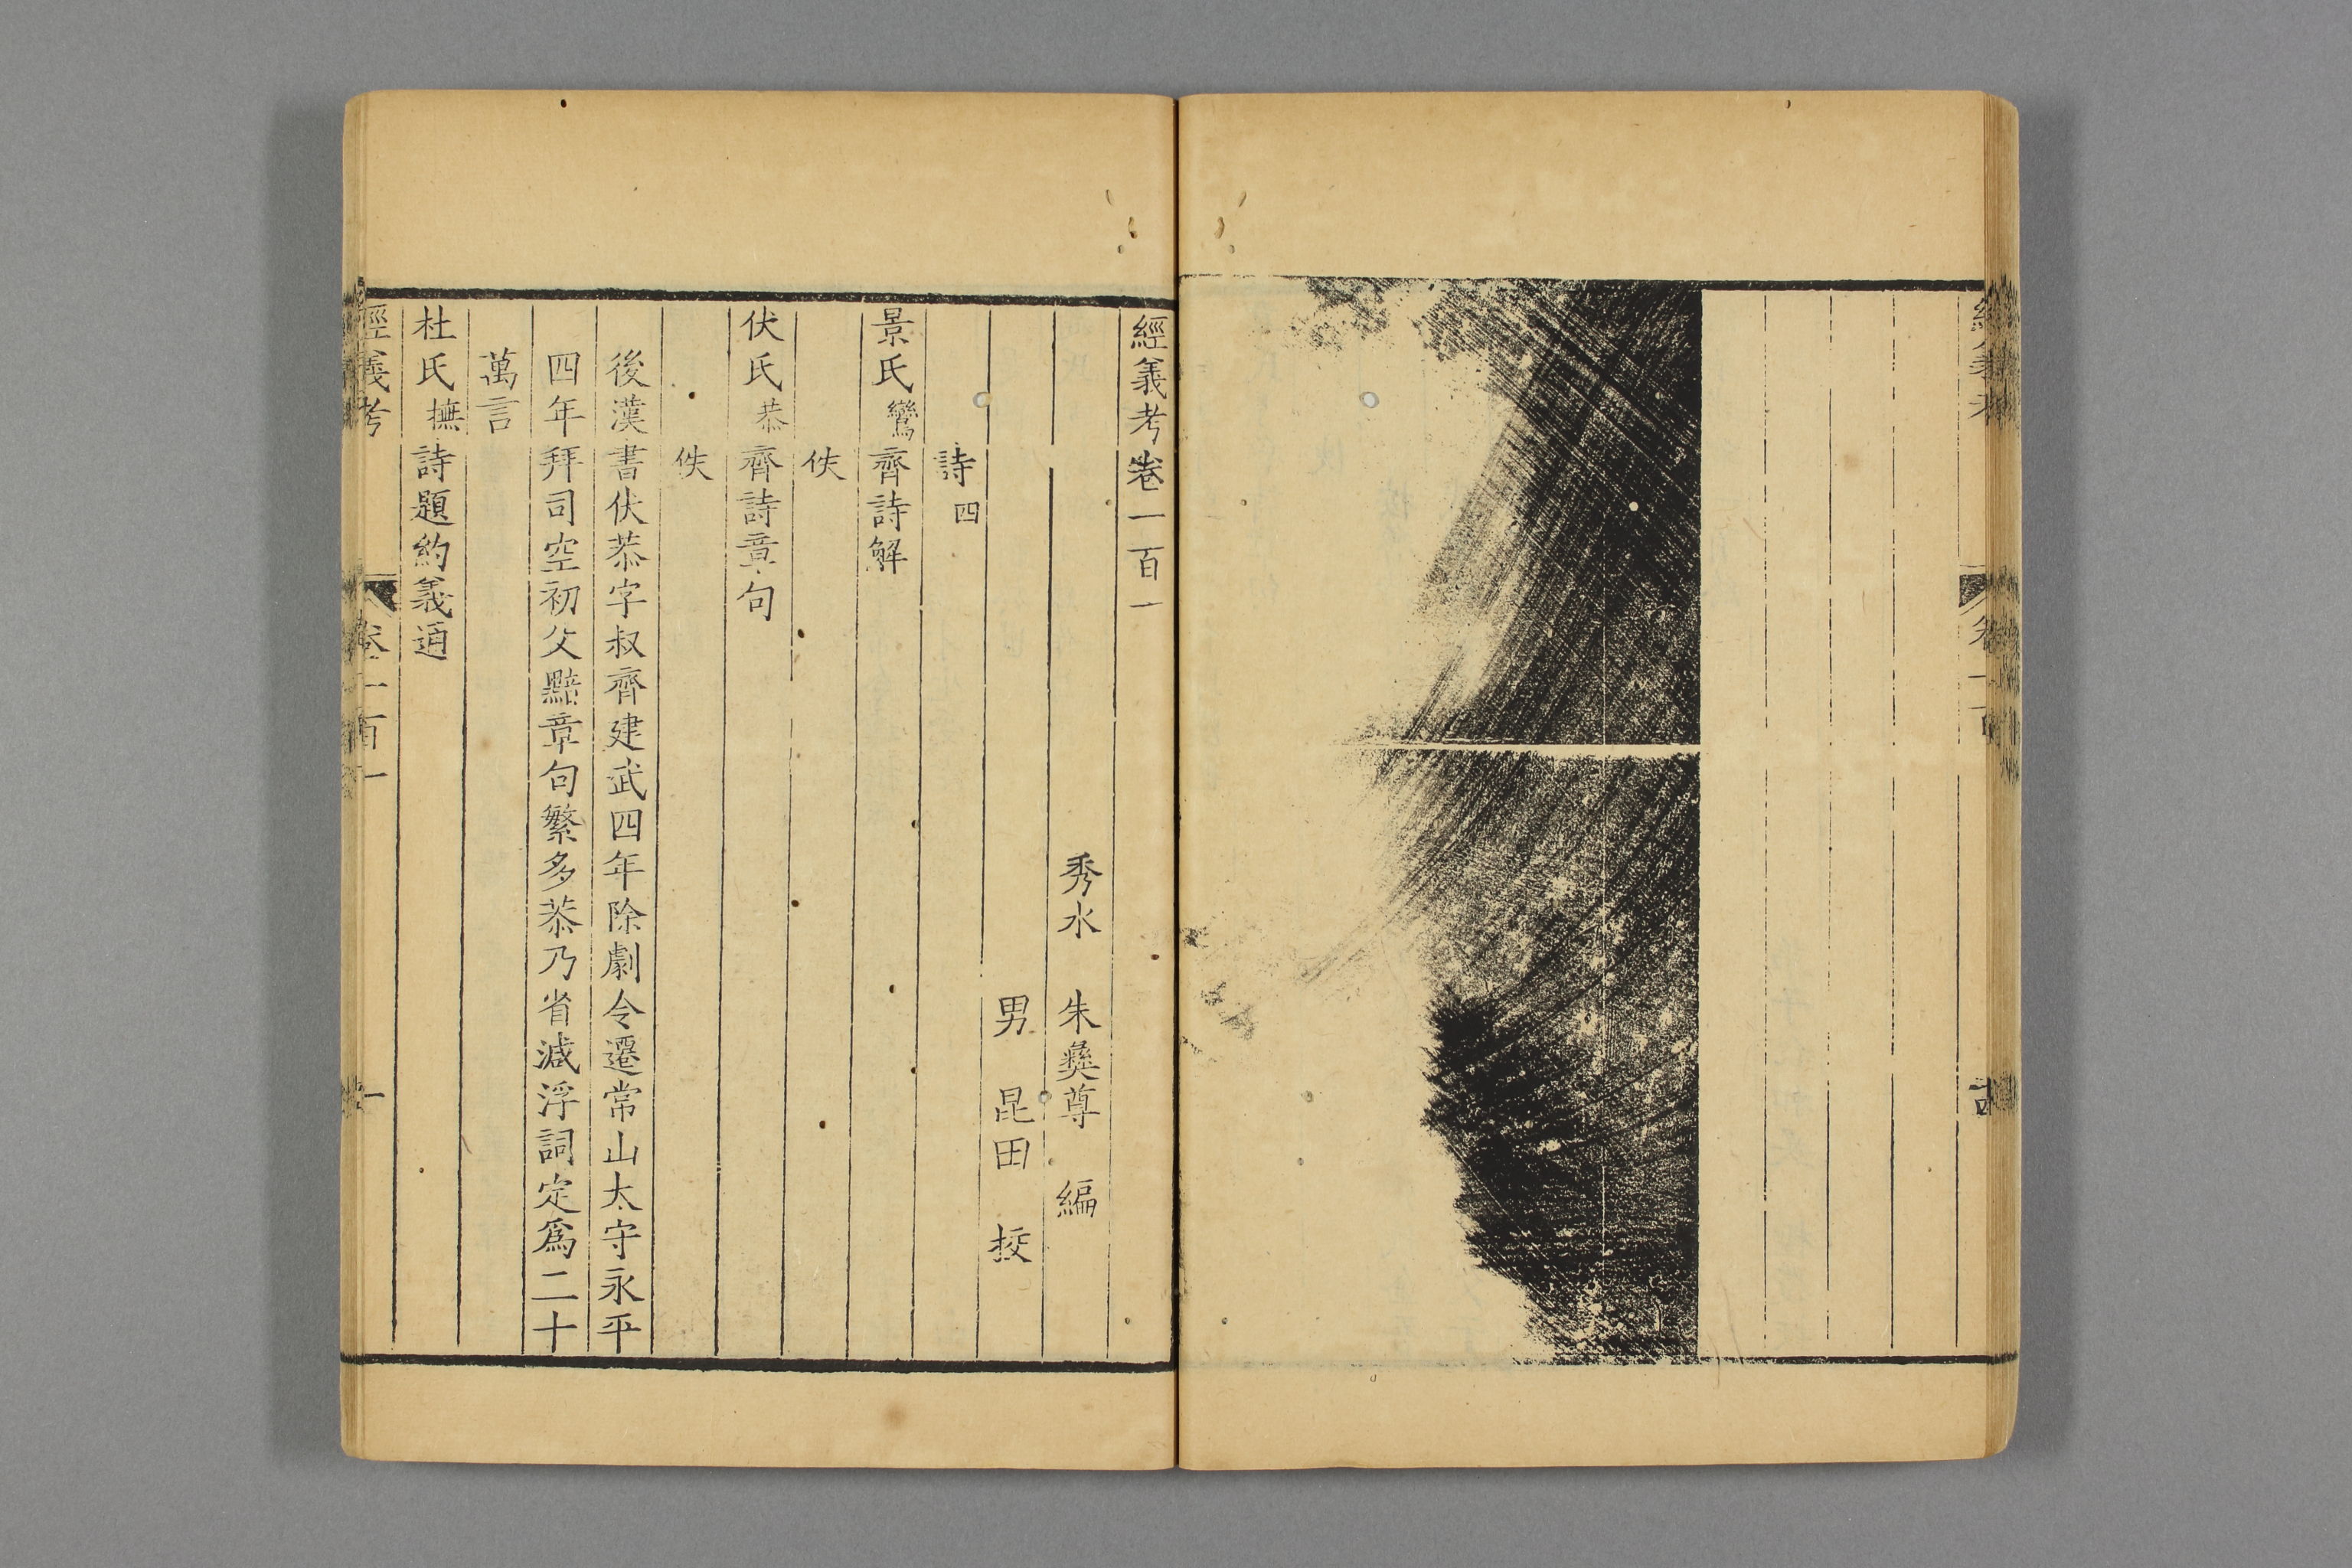 經義考卷一百一
秀水 朱彝尊 編
男 昆田 挍
詩四
景氏鸞齊詩解
佚
伏氏恭齊詩章句
佚
後漢書伏恭字叔齊建武四年除劇令遷常山太守永平
四年拜司空初父黯章句繁多恭乃省減浮詞定爲二十
萬言
杜氏撫詩題約義通
經義考 卷一百一 一